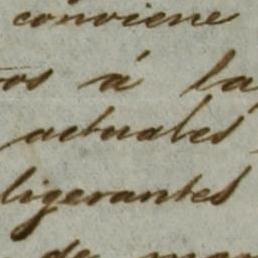 conviene
os á la
actuales
ligerantes
de man